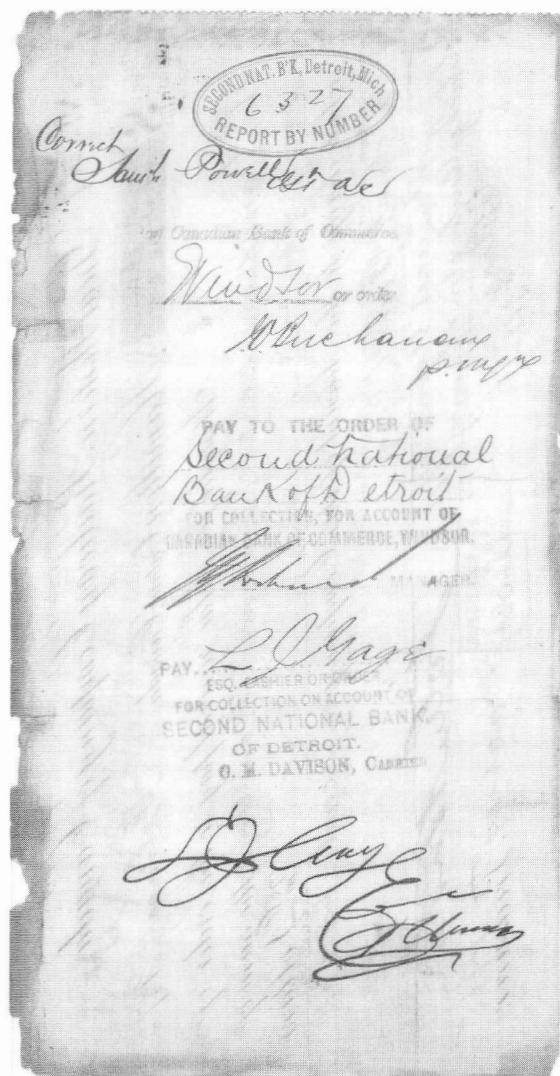 SECOND NAT. B'K, Detroit, Mich
6327
REPORT BY NUMBER
Correct
Saml. Powell
Canadian Bank of Commerce
Windsor or order
Buchanan
PAY TO THE ORDER OF
Second National
Bank of Detroit
FOR COLLECTION, FOR ACCOUNT OF
CANADIAN BANK OF COMMERCE, WINDSOR.
MANAGER.
PAY... L J Gage
ESQ. CASHIER OR ORDER
FOR COLLECTION ON ACCOUNT OF
SECOND NATIONAL BANK.
OF DETROIT.
C. M. DAVISON, CASHIER
L J Gage